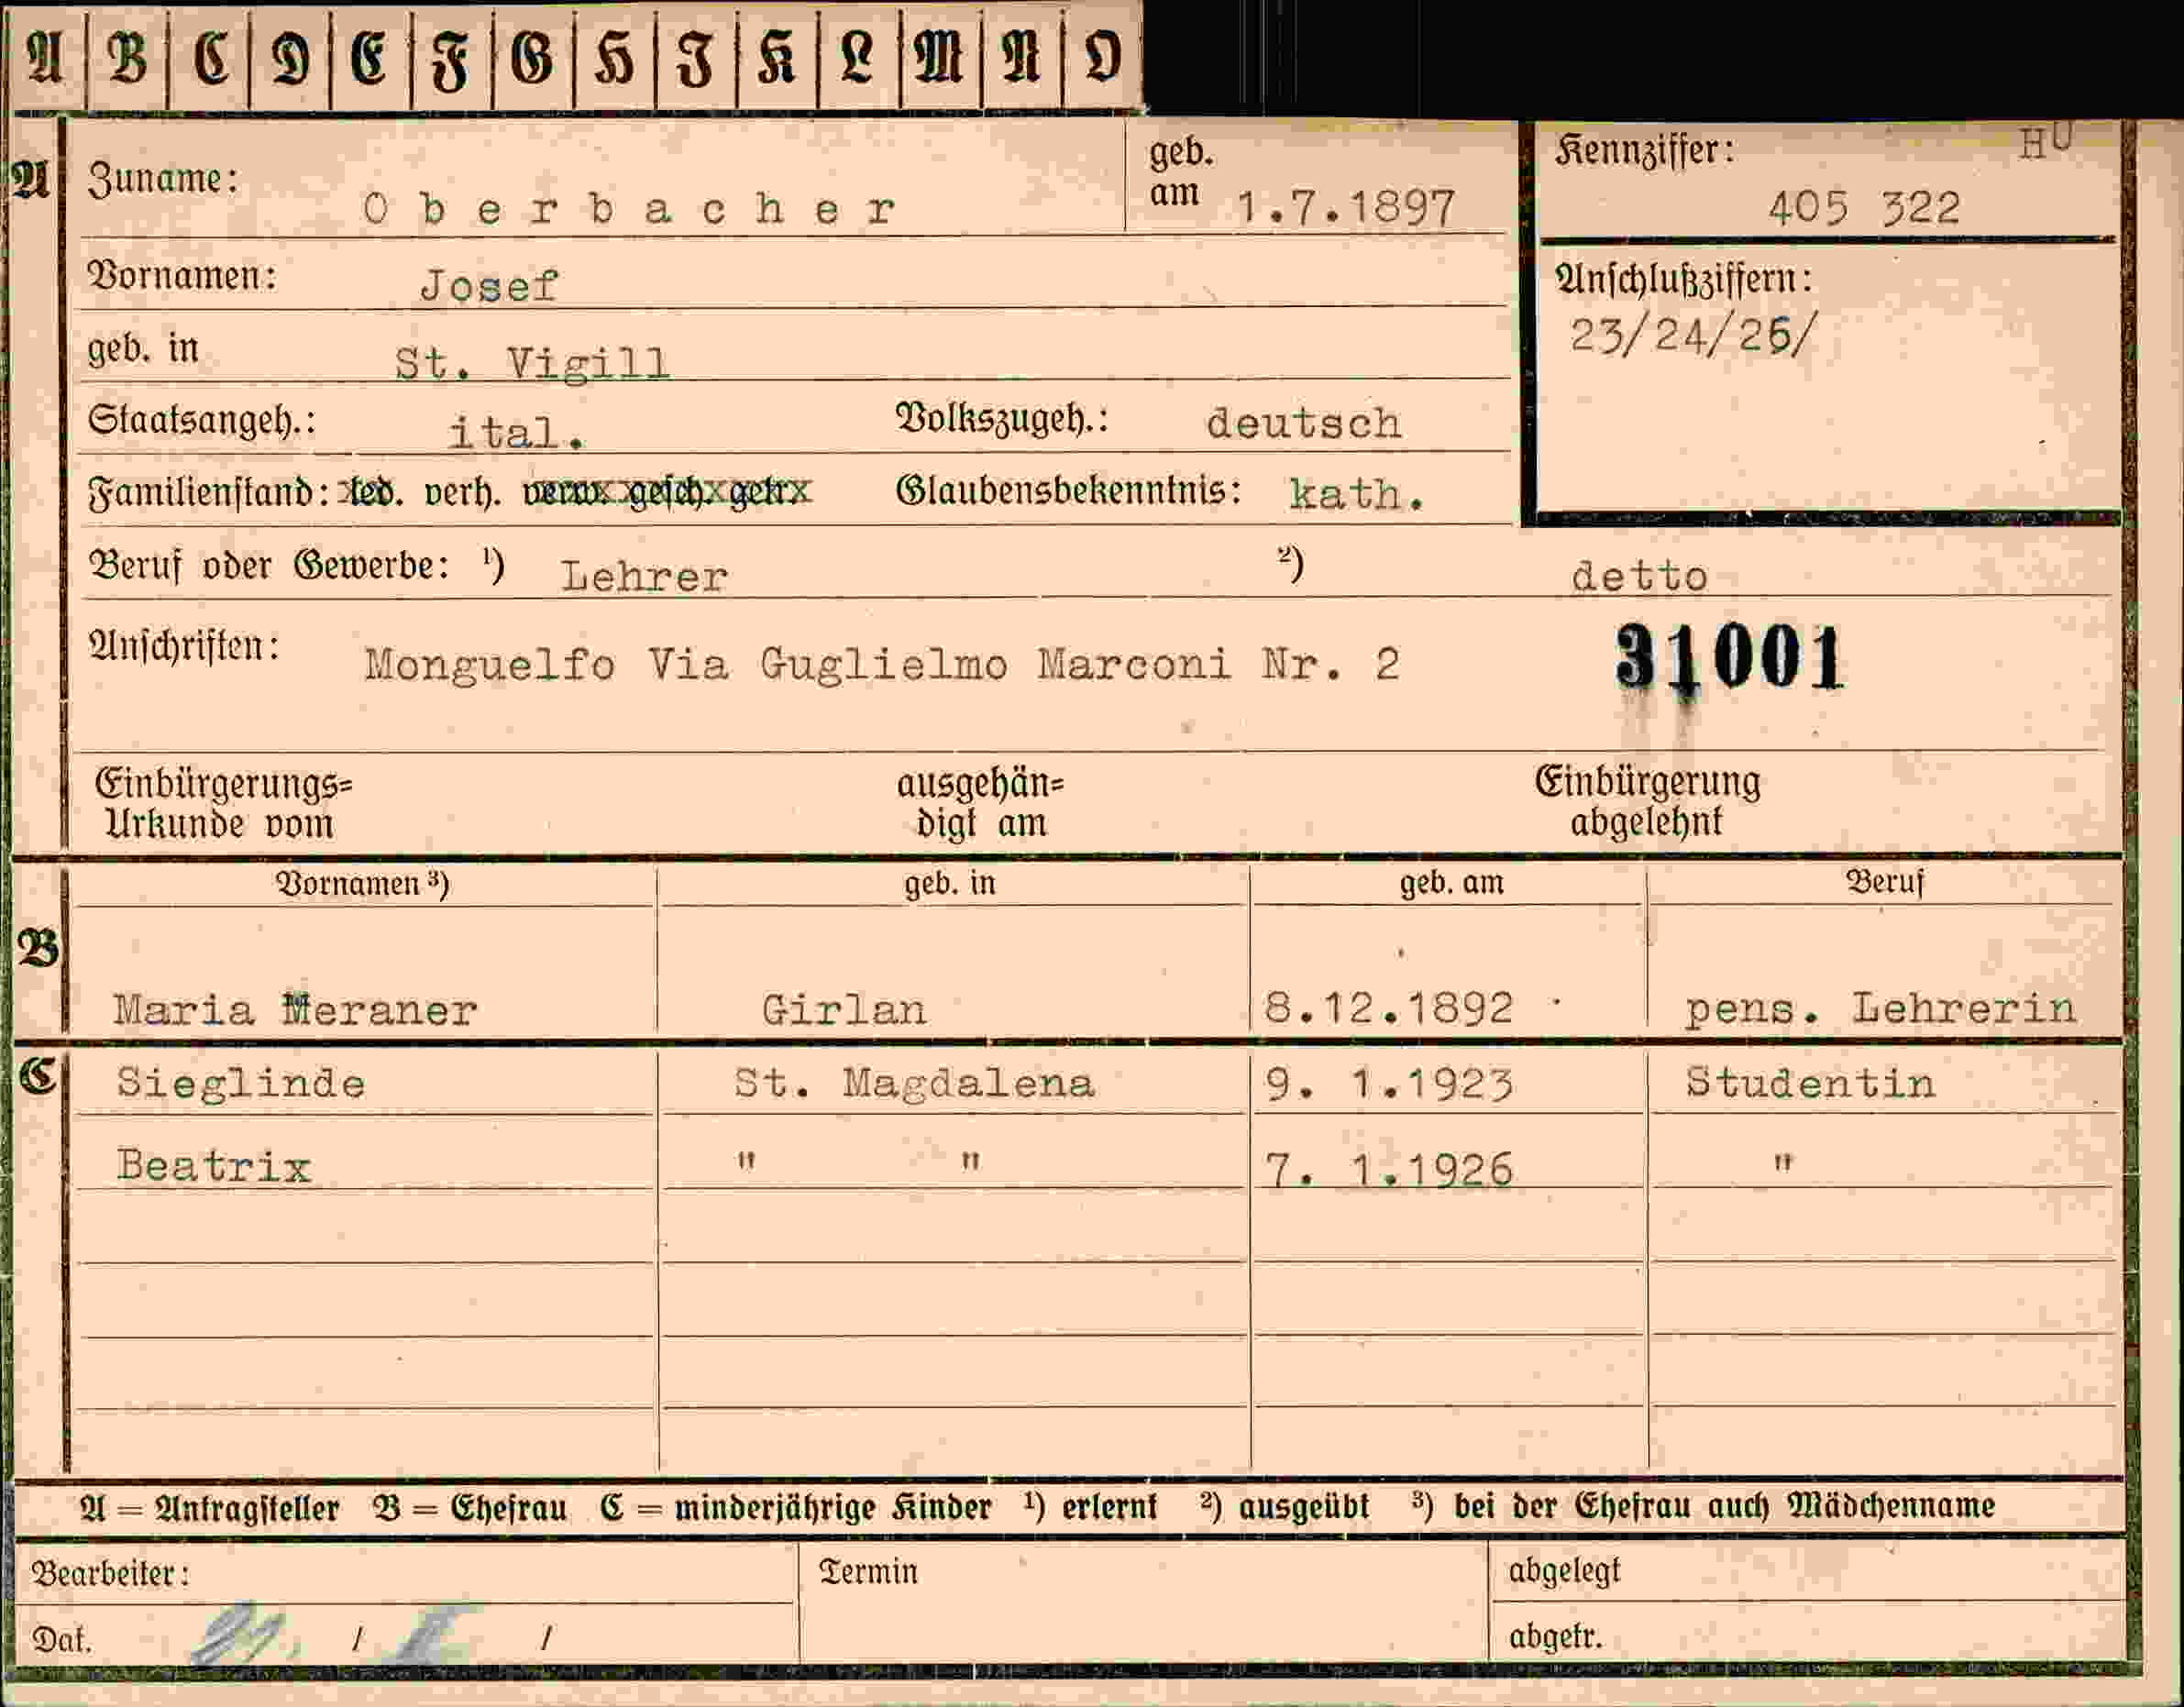 A B C D E F G H I K L M N O
A Zuname: Oberbacher geb. am 1.7.1897
Kennziffer: HU
405 322
Vornamen: Josef
Anschlußziffern:
23/24/25/
geb. in St. Vigill
Staatsangeh.: ital. Volkszugeh.: deutsch
Familienstand: led. verh. verw. gesch. getr. Glaubensbekenntnis: kath.
Beruf oder Gewerbe: ¹) Lehrer ²) detto
Anschriften: Monguelfo Via Guglielmo Marconi Nr. 2 31001
Einbürgerungs= ausgehän= Einbürgerung
Urkunde vom digt am abgelehnt
Vornamen ³) geb. in geb. am Beruf
B
Maria Meraner Girlan 8.12.1892 pens. Lehrerin
C Sieglinde St. Magdalena 9. 1.1923 Studentin
Beatrix " " 7. 1.1926 "
A = Antragsteller B = Ehefrau C = minderjährige Kinder ¹) erlernt ²) ausgeübt ³) bei der Ehefrau auch Mädchenname
Bearbeiter: Termin abgelegt
Dat. / / abgetr.